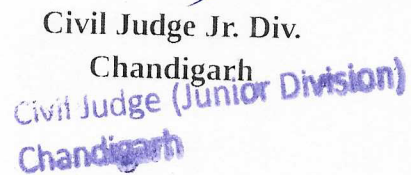 Civil Judge Jr. Div.
Chandigarh
Civil Judge (Junior Division)
Chandigarh